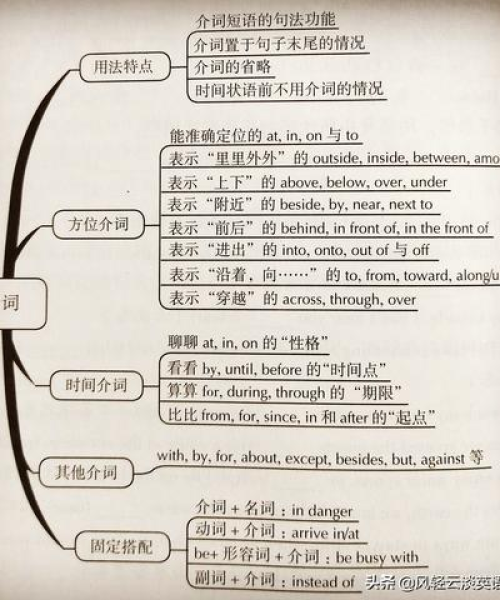 词
用法特点
介词短语的句法功能
介词置于句子末尾的情况
介词的省略
时间状语前不用介词的情况
方位介词
能准确定位的 at, in, on 与 to
表示“里里外外”的 outside, inside, between, amo
表示“上下”的 above, below, over, under
表示“附近”的 beside, by, near, next to
表示“前后”的 behind, in front of, in the front of
表示“进出”的 into, onto, out of 与 off
表示“沿着，向……”的 to, from, toward, along/u
表示“穿越”的 across, through, over
时间介词
聊聊 at, in, on 的“性格”
看看 by, until, before 的“时间点”
算算 for, during, through 的 “期限”
比比 from, for, since, in 和 after 的“起点”
其他介词
with, by, for, about, except, besides, but, against 等
固定搭配
介词 + 名词：in danger
动词 + 介词：arrive in/at
be+ 形容词 + 介词：be busy with
副词 + 介词：instead of
头条 @风轻云淡英语